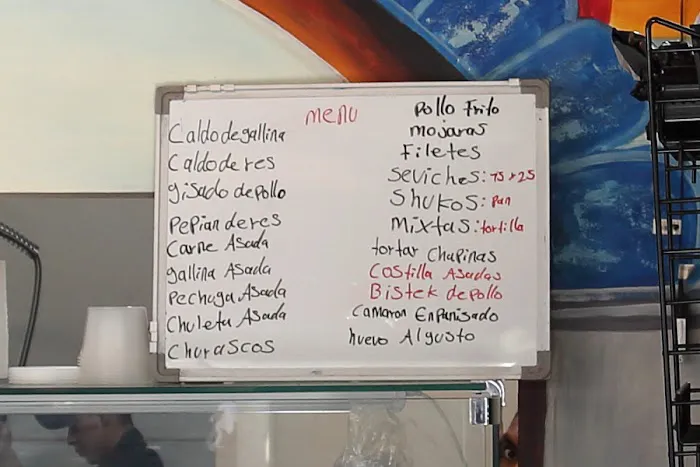 menu
Caldo de gallina
Caldo de res
gisado de pollo
pepian de res
Carne Asada
gallina Asada
pechuga Asada
Chuleta Asada
Churascos
pollo Frito
mojaras
Filetes
Seviches: 15 y 25
Shukos: pan
Mixtas: tortilla
tortar Chapinas
Costilla Asadas
Bistek de pollo
Camaron Enpanisado
huevo Al gusto